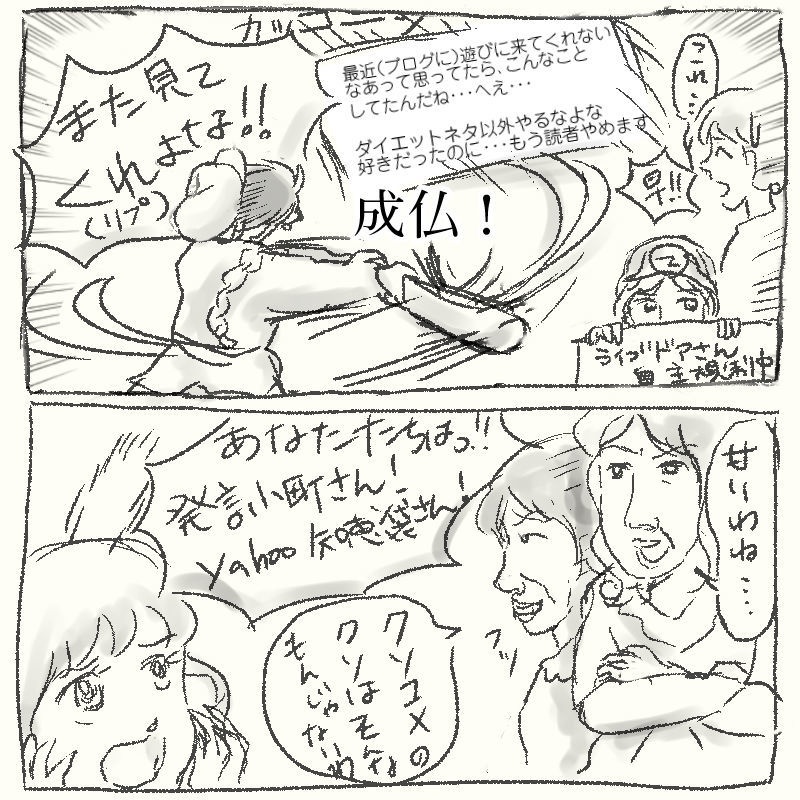 クソコメ
最近(ブログに)遊びに来てくれない
なあって思ってたら、こんなこと
してたんだね・・・へえ・・・
ダイエットネタ以外やるなよな
好きだったのに・・・もう読者やめます
これ…
早!!
また見て
くれよな!!
(リプ)
成仏!
ライブドアさん
甘いわね…
あなたたちはっ!!
発言小町さん!
Yahoo 知恵袋さん!
フッ
クソコメの
クソはそんな
もんじゃないわ